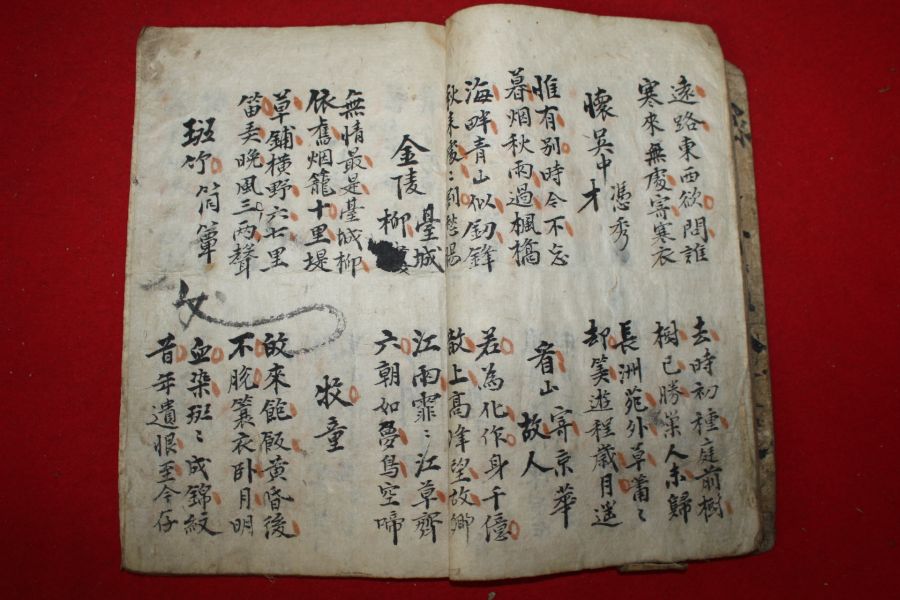 遠路東西欲問誰
寒來無處寄寒衣
去時初種庭前樹
樹已勝巢人未歸
懷吳中憑秀才
長洲苑外草蕭〻
却笑遊程歲月迷
惟有別時今不忘
暮烟秋雨過楓橋
看山寄京華故人
海畔青山似釰鋒
秋來處〻割愁腸
若為化作身千億
散上高峰望故鄉
金陵臺城柳
江雨霏〻江草齊
六朝如夢鳥空啼
無情最是臺城柳
依舊烟籠十里堤
牧童
草鋪橫野六七里
笛弄晚風三兩聲
故來飽飯黃昏後
不脫簑衣卧月明
斑竹筒簟
血染斑〻成錦紋
昔年遺恨至今存